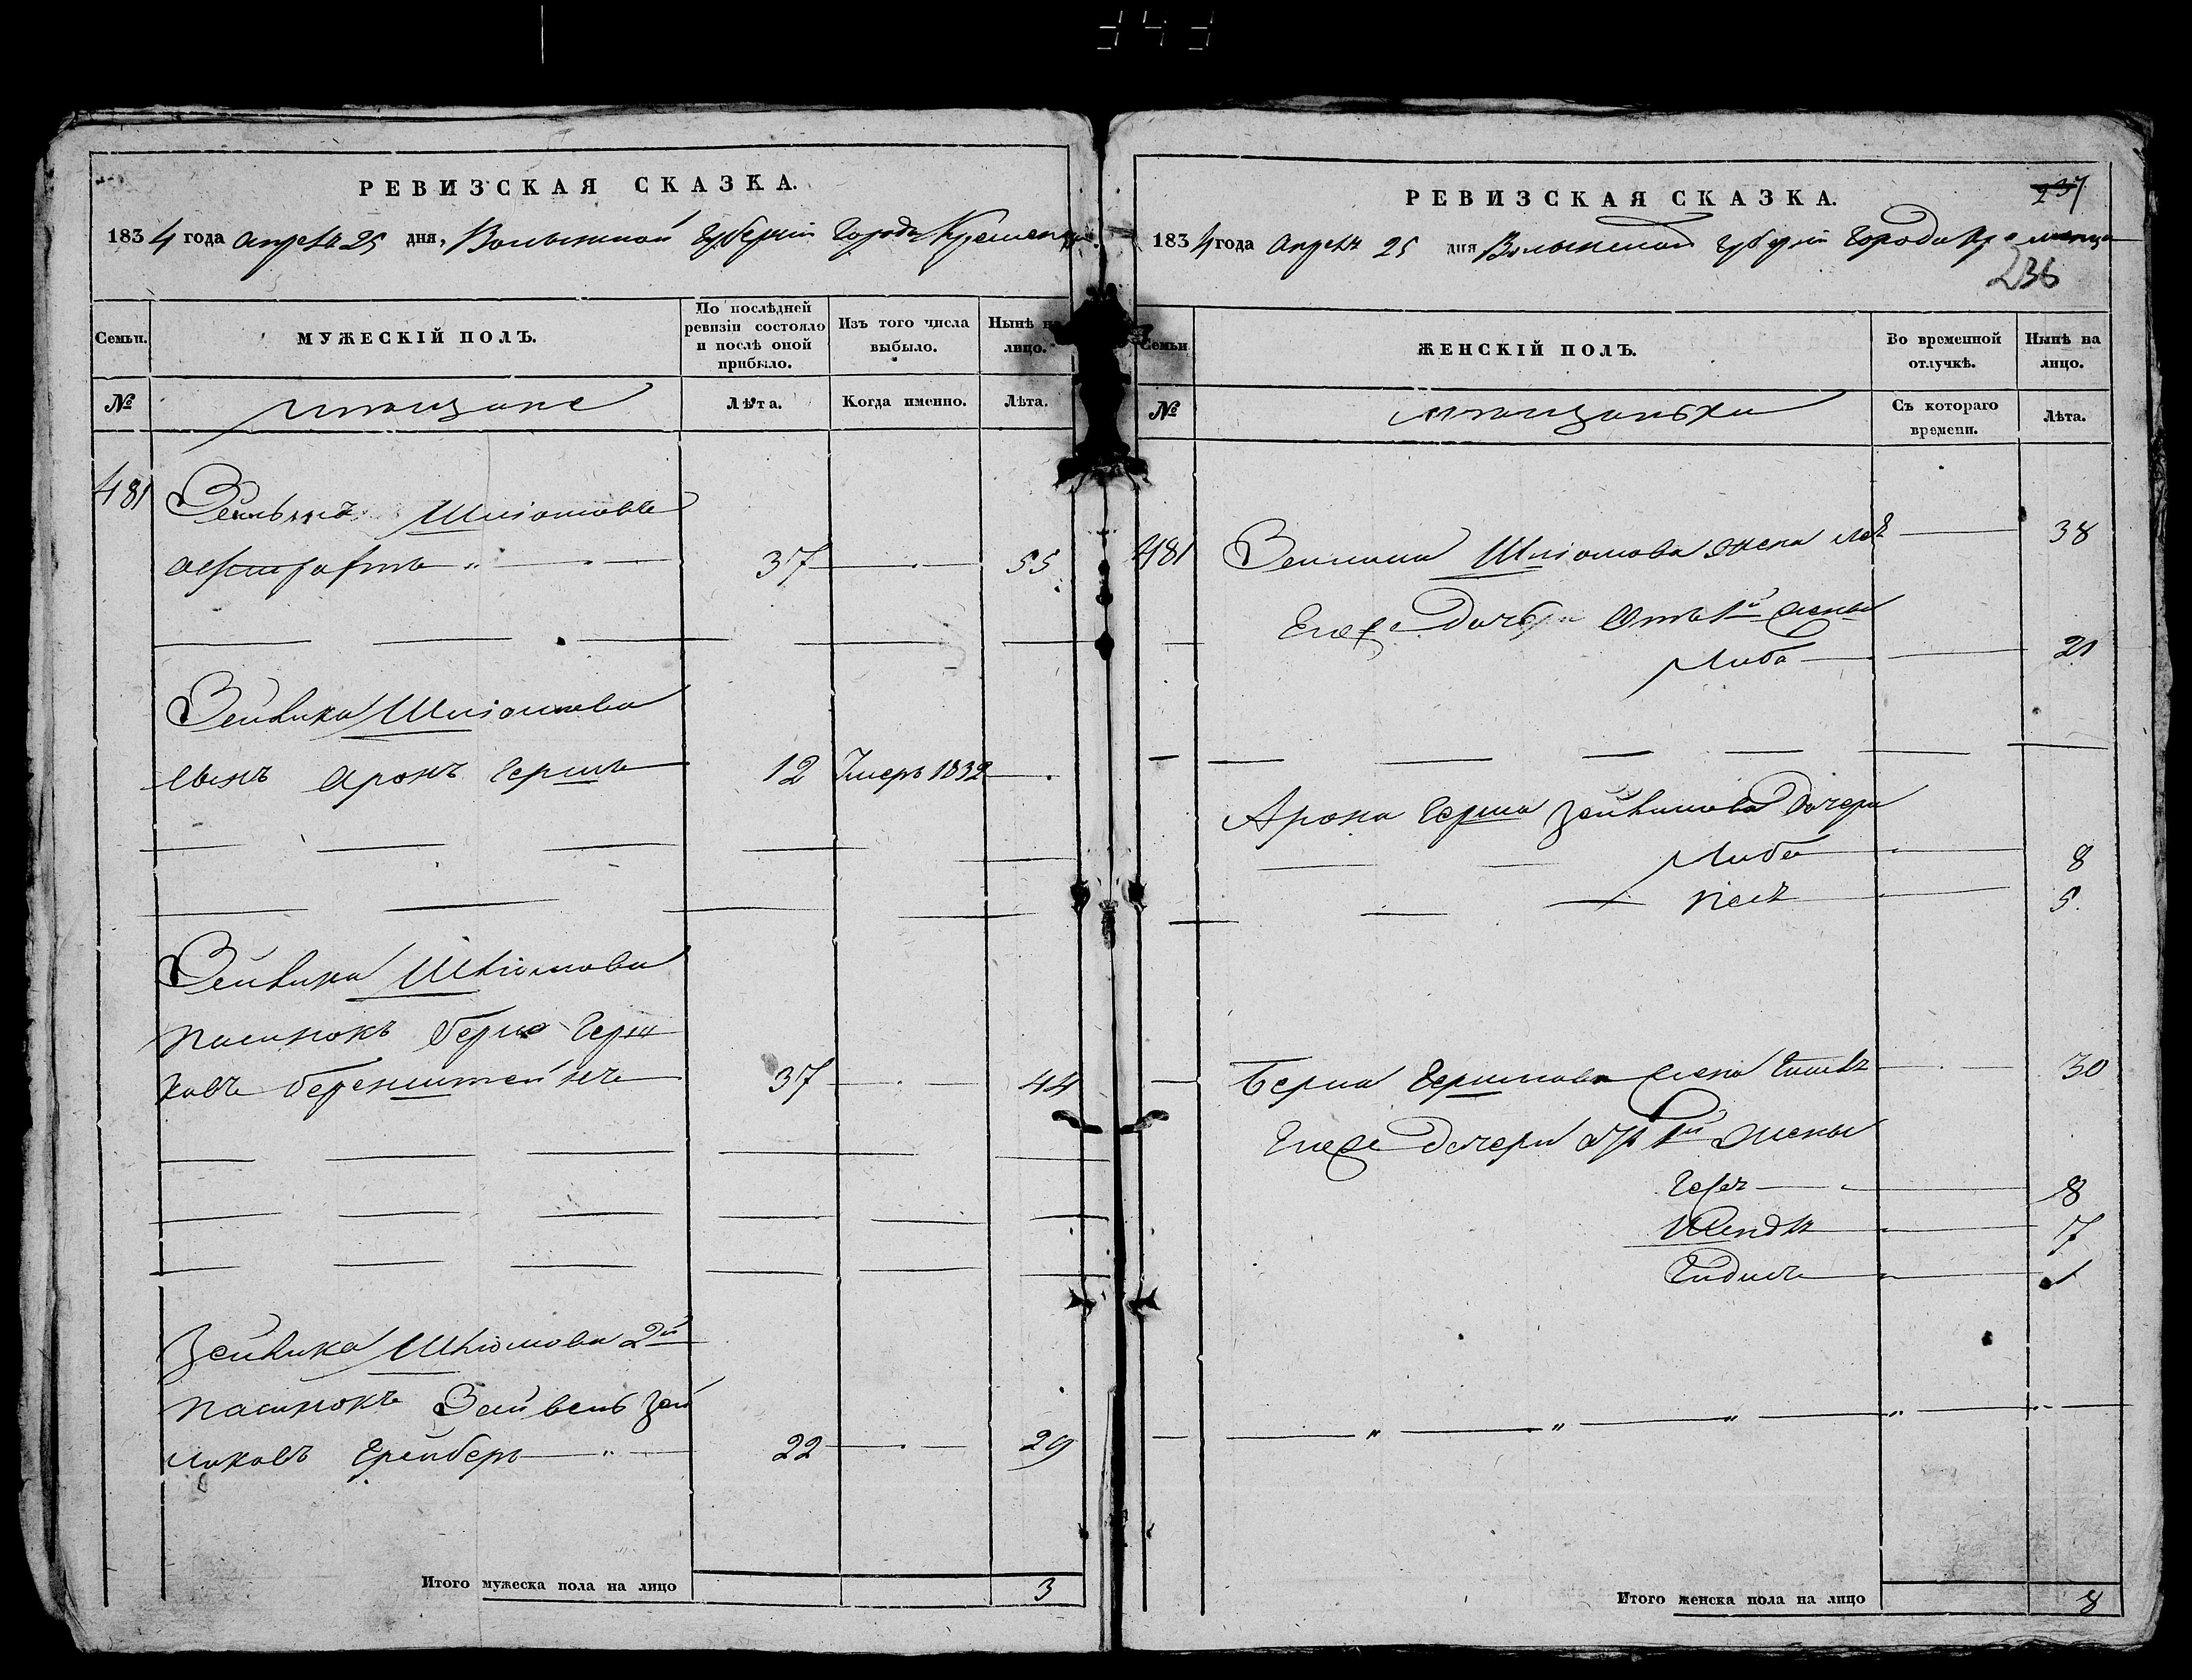 РЕВИЗСКАЯ СКАЗКА.
1834 года апреля 25 дня, Волынской губернии города Кременца
Семьи. МУЖЕСКІЙ ПОЛЪ. По послѣдней ревизіи состояло и послѣ оной прибыло. Изъ того числа выбыло. Нынѣ на лицо.
№ мѣщане Лѣта. Когда именно. Лѣта.
481 Шліомовъ
37 55
Зейлика Шліомова
сынъ Аронъ Гершъ 12 Умеръ 1832
Зейлика Шліомова
пасинокъ Берко Герш
ковъ Беренштейнъ 37 44
Зейлика Шліомова 2й
пасинокъ Зейвель Зей
ликовъ Грейберъ 22 29
Итого мужеска пола на лицо 3
РЕВИЗСКАЯ СКАЗКА.
237
1834 года апреля 25 дня Волынской губерніи города Кременца
236
Семьи ЖЕНСКІЙ ПОЛЪ. Во временной отлучкѣ. Нынѣ на лицо.
№ мѣщаньки Съ котораго времени. Лѣта.
481 Шліомова жена 38
Его же дочь отъ 1й жены
Либа 21
Арона Герша Зейликова дочери
Либа 8
5.
Берка Гершкова жена 30
Его же дочери отъ 1й жены
8
Шендля 7
1
Итого женска пола на лицо 8